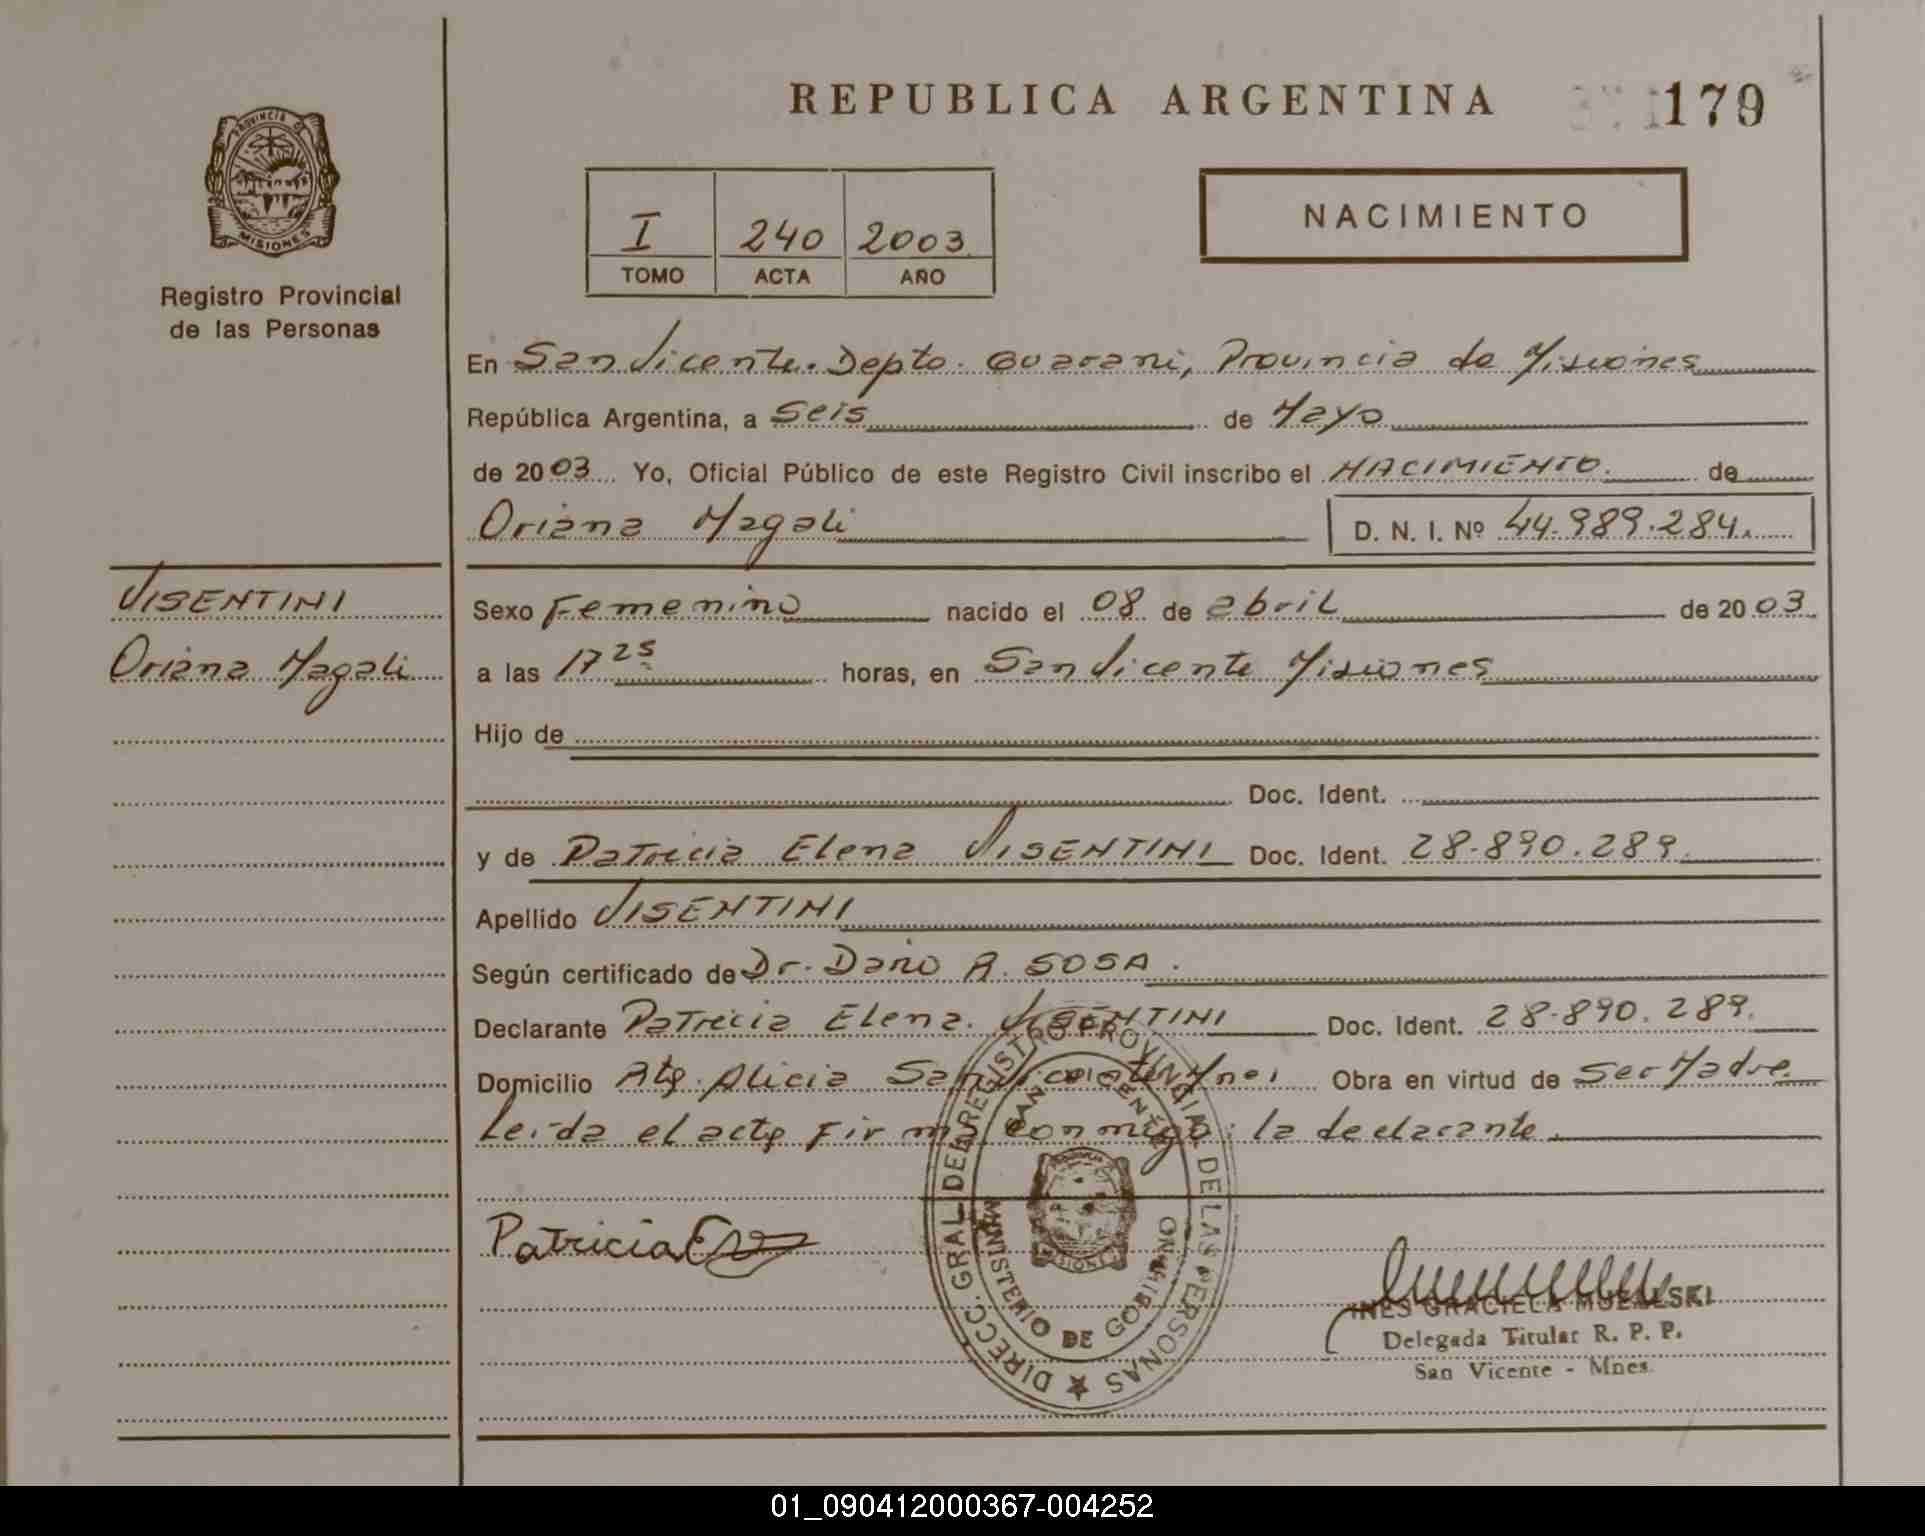 REPUBLICA ARGENTINA
179
PROVINCIA DE
MISIONES
Registro Provincial
de las Personas
I 240 2003
TOMO ACTA AÑO
NACIMIENTO
En San Vicente. Depto. Guarani, Provincia de Misiones
República Argentina, a Seis de Mayo
de 2003 Yo, Oficial Público de este Registro Civil inscribo el NACIMIENTO. de
Oriana Magali D. N. I. Nº 44.989.284.
VISENTINI
Oriana Magali
Sexo Femenino nacido el 08 de abril de 2003
a las 17 25 horas, en San Vicente Misiones
Hijo de
Doc. Ident.
y de Patricia Elena VISENTINI Doc. Ident. 28.890.289.
Apellido VISENTINI
Según certificado de Dr. Dario A. SOSA.
Declarante Patricia Elena VISENTINI Doc. Ident. 28.890.289.
Domicilio Alicia San Vicente Mnes Obra en virtud de Ser Madre
Leida el acta firma conmigo: la declarante.
DIRECC. GRAL. DEL REGISTRO PROVINCIAL DE LAS PERSONAS
SAN VICENTE
MINISTERIO DE GOBIERNO
MISIONES
Patricia
INES GRACIELA
Delegada Titular R. P. P.
San Vicente - Mnes.
01_090412000367-004252